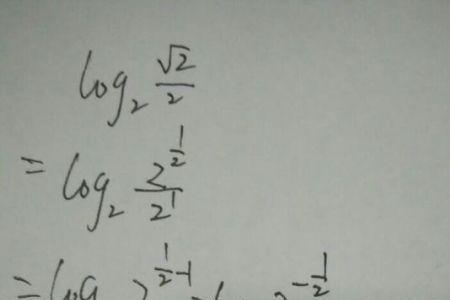 log₂ √2/2
= log₂ 2^(1/2)/2^1
= log 2^(1/2-1) = 2^(-1/2)